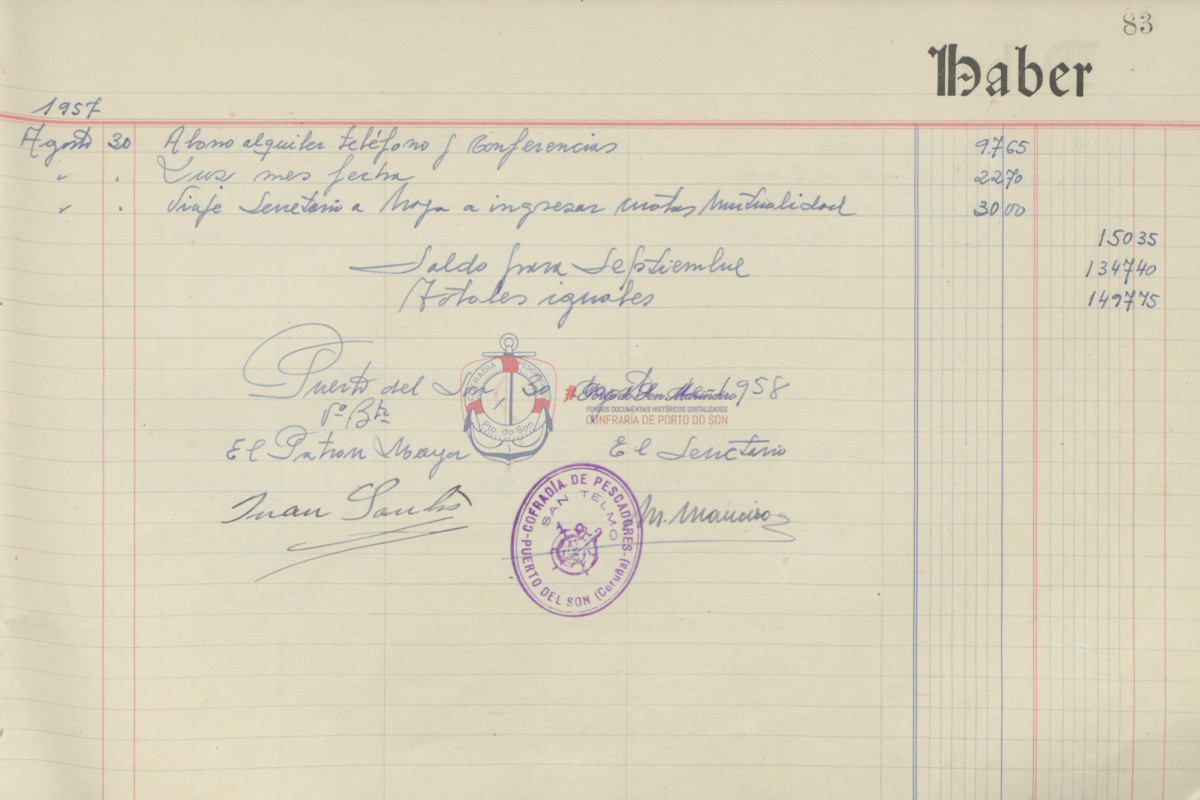 83
Haber
1957
Agosto 30 Abono alquiler teléfono y conferencias 97 65
" " Luz mes fecha 22 70
" " Viaje Secretario a Noya a ingresar cuotas Mutualidad 30 00
150 35
Saldo para Septiembre 1347 40
Totales iguales 1497 75
Puerto del Son 30 1958
Vº Bº
El Patron Mayor El Secretario
Juan Santos M. Maneiro
COFRADÍA Pto. do Son
# Porto do Son Mariñeiro
FONDOS DOCUMENTAIS HISTÓRICOS DIXITALIZADOS
CONFRARÍA DE PORTO DO SON
COFRADÍA DE PESCADORES
SAN TELMO
PUERTO DEL SON (Coruña)